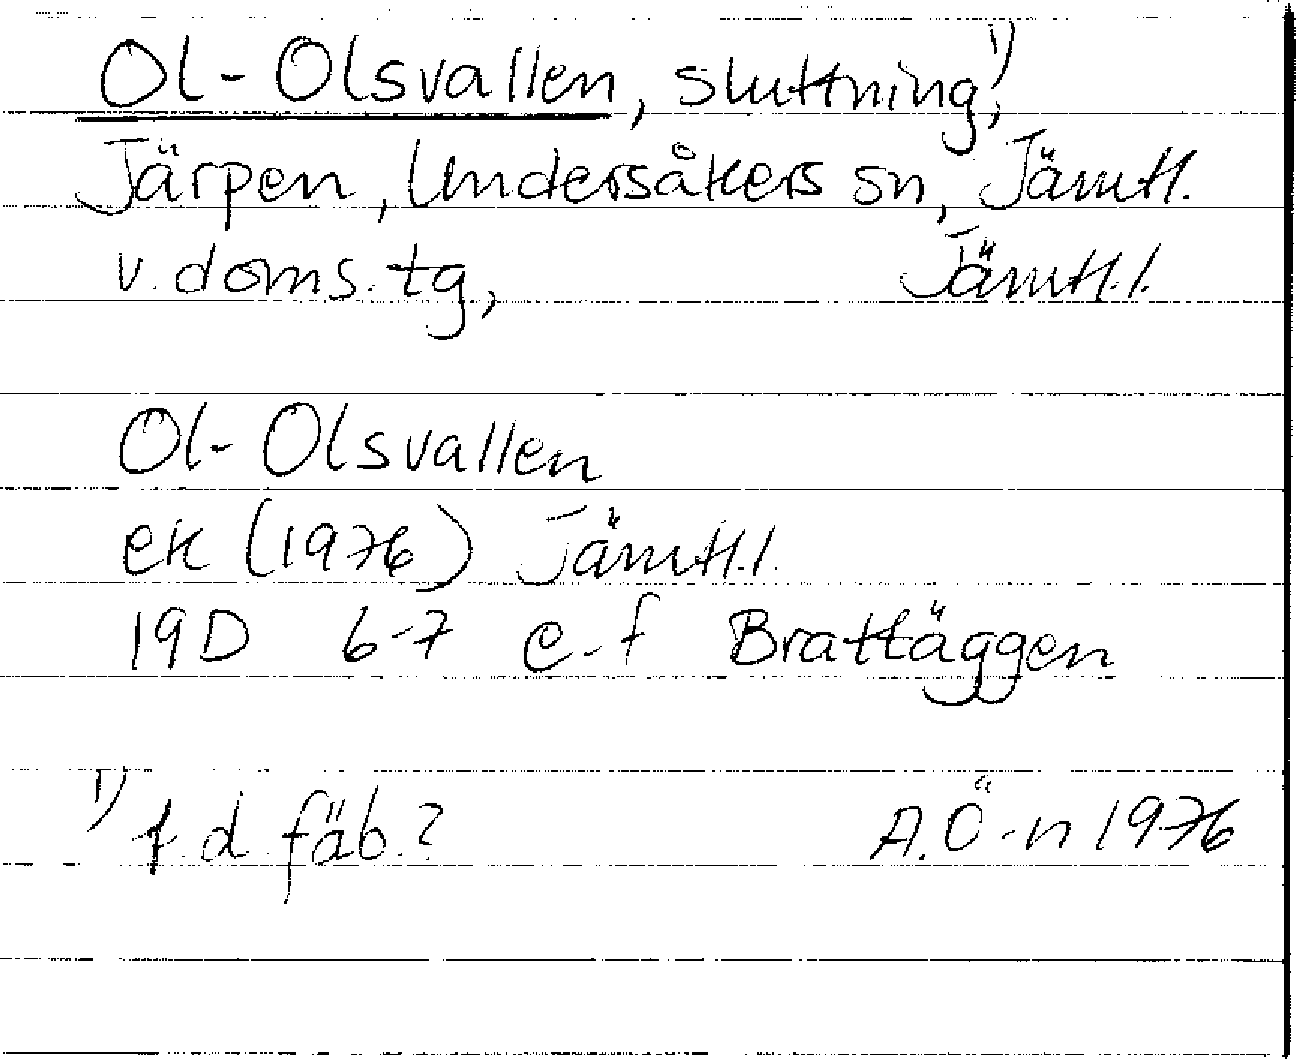 Ol-Olsvallen, sluttning,¹⁾
Järpen, Undersåkers sn, Jämtl.
v. doms. tg, Jämtl.l.
Ol-Olsvallen
ek (1976) Jämtl.l.
19D 6-7 e-f Brattäggen
¹⁾ f.d. fäb.? A.Ö-n 1976